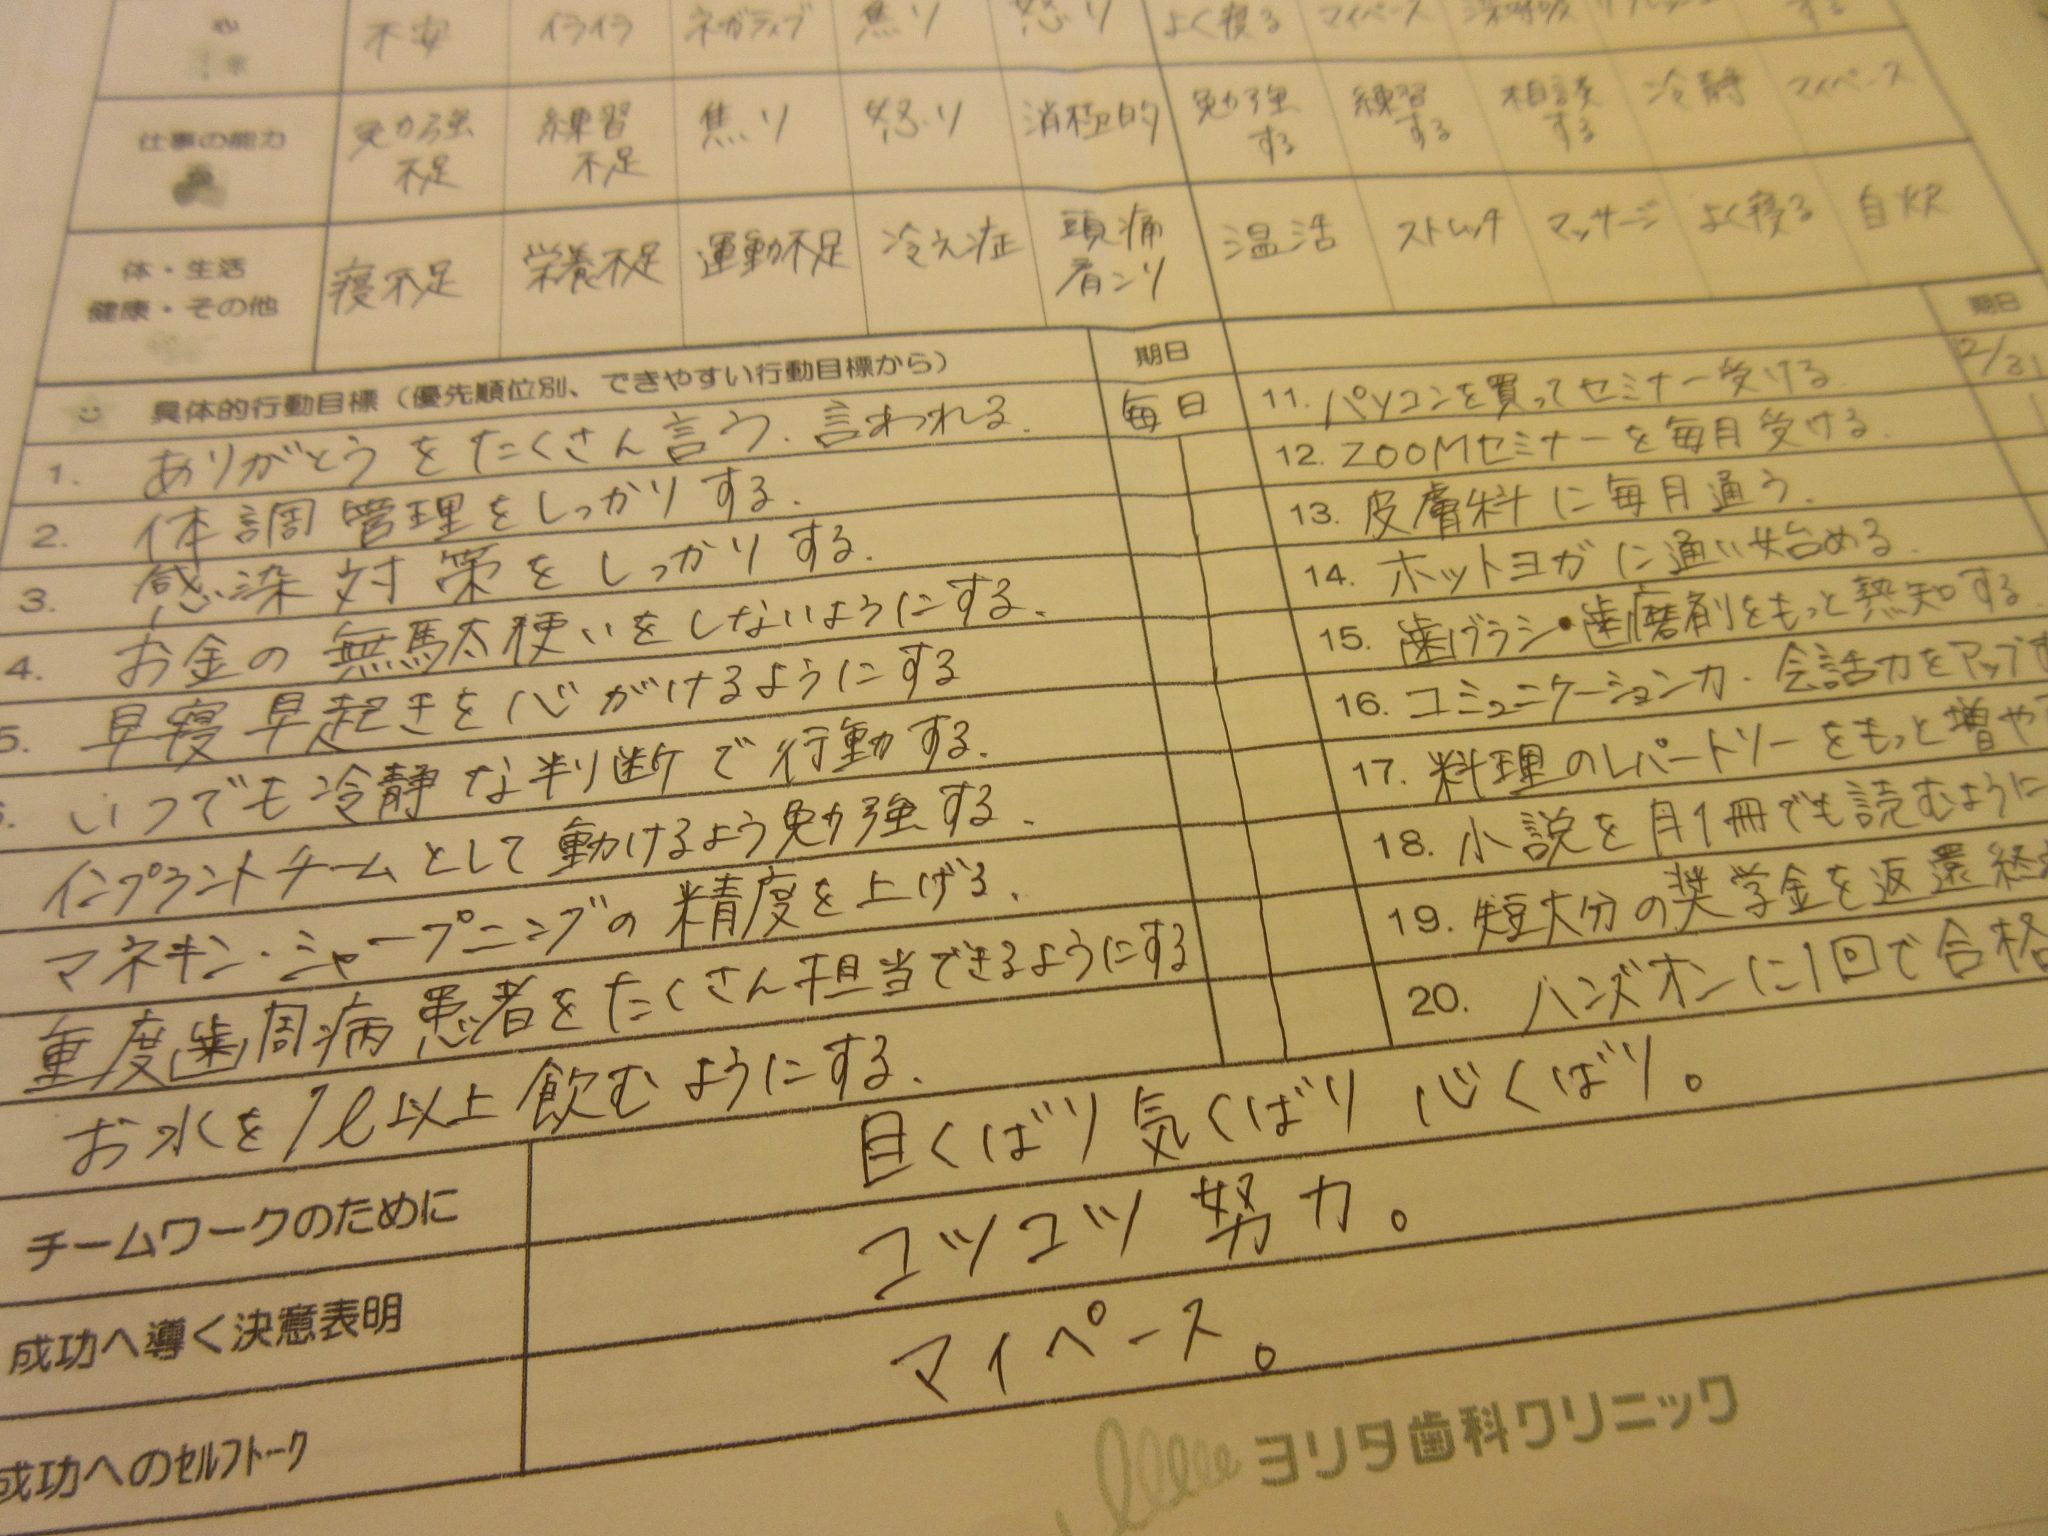 不安 イライラ ネガティブ 焦り 怒り よく寝る マイペース 深呼吸 する
仕事の能力 勉強不足 練習不足 焦り 怒り 消極的 勉強する 練習する 相談する 冷静 マイペース
体・生活
健康・その他 寝不足 栄養不足 運動不足 冷え症 頭痛肩こり 温活 ストレッチ マッサージ よく寝る 自炊
具体的行動目標(優先順位別、できやすい行動目標から) 期日
期日
1. ありがとうをたくさん言う、言われる。 毎日
2. 体調管理をしっかりする。
3. 感染対策をしっかりする。
4. お金の無駄使いをしないようにする。
5. 早寝早起きを心がけるようにする
いつでも冷静な判断で行動する。
インプラントチームとして動けるよう勉強する。
マネキン・シャープニングの精度を上げる。
重度歯周病患者をたくさん担当できるようにする
お水を1ℓ以上飲むようにする。
11. パソコンを買ってセミナー受ける。 12/31
12. ZOOMセミナーを毎月受ける。
13. 皮膚科に毎月通う。
14. ホットヨガに通い始める。
15. 歯ブラシ・歯磨剤をもっと熟知する。
16. コミュニケーション力・会話力をアップす
17. 料理のレパートリーをもっと増や
18. 小説を月1冊でも読むように
19. 短大分の奨学金を返還終
20. ハンズオンに1回で合格
チームワークのために 目くばり気くばり心くばり。
成功へ導く決意表明 コツコツ努力。
成功へのセルフトーク マイペース。
ヨリタ歯科クリニック